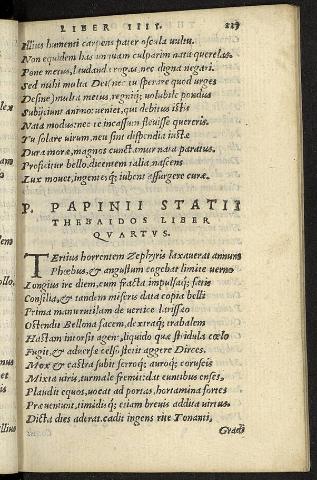 LIBER IIII.
Illius humenti carpens pater oscula vultu.
Non equidem has unquam culparim nata querelas.
Pone metus, laudanda rogas, nec digna negari.
Sed mihi multa Dei (nec tu sperare quod urges
Desine) multa metus, regniq; volubile pondus
Subijciunt animo: veniet, qui debitus istis
Nata modus: nec te incassum fleuisse quereris.
Tu solare virum, neu sint dispendia iustæ
Dura moræ, magnos cunctamur nata paratus.
Proficitur bello, dicentem talia nascens
Lux mouet, ingentesq; iubent assurgere curæ.
P. PAPINII STATII
THEBAIDOS LIBER
QVARTVS.
TErtius horrentem Zephyris laxauerat annum
Phœbus, & angustum cogebat limite verno
Longius ire diem, cum fracta impulsaq; fatis
Consilia, & tandem miseris data copia belli
Prima manu rutilam de vertice Larissæo
Ostendit Bellona facem, dextraq; trabalem
Hastam intorsit agens, liquido quæ stridula cœlo
Fugit, & aduersæ celso stetit aggere Dirces.
Mox & castra subit ferroq; auroq; coruscis
Mixta viris, turmale fremit: dat euntibus enses,
Plaudit equos, vocat ad portas, hortamina fortes
Præueniunt, timidisq; etiam breuis addita virtus.
Dicta dies aderat. cadit ingens rite Tonanti,